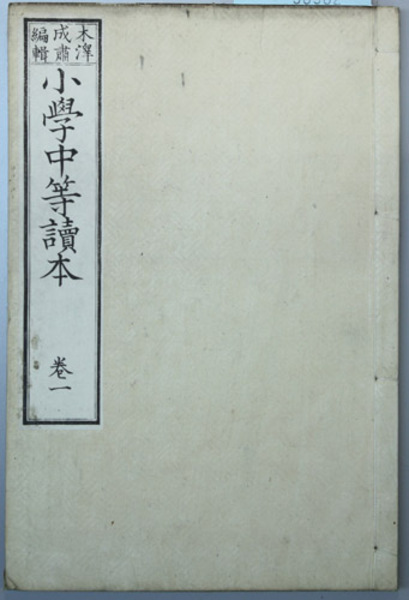 木澤
成肅
編輯
小學中等讀本
卷一